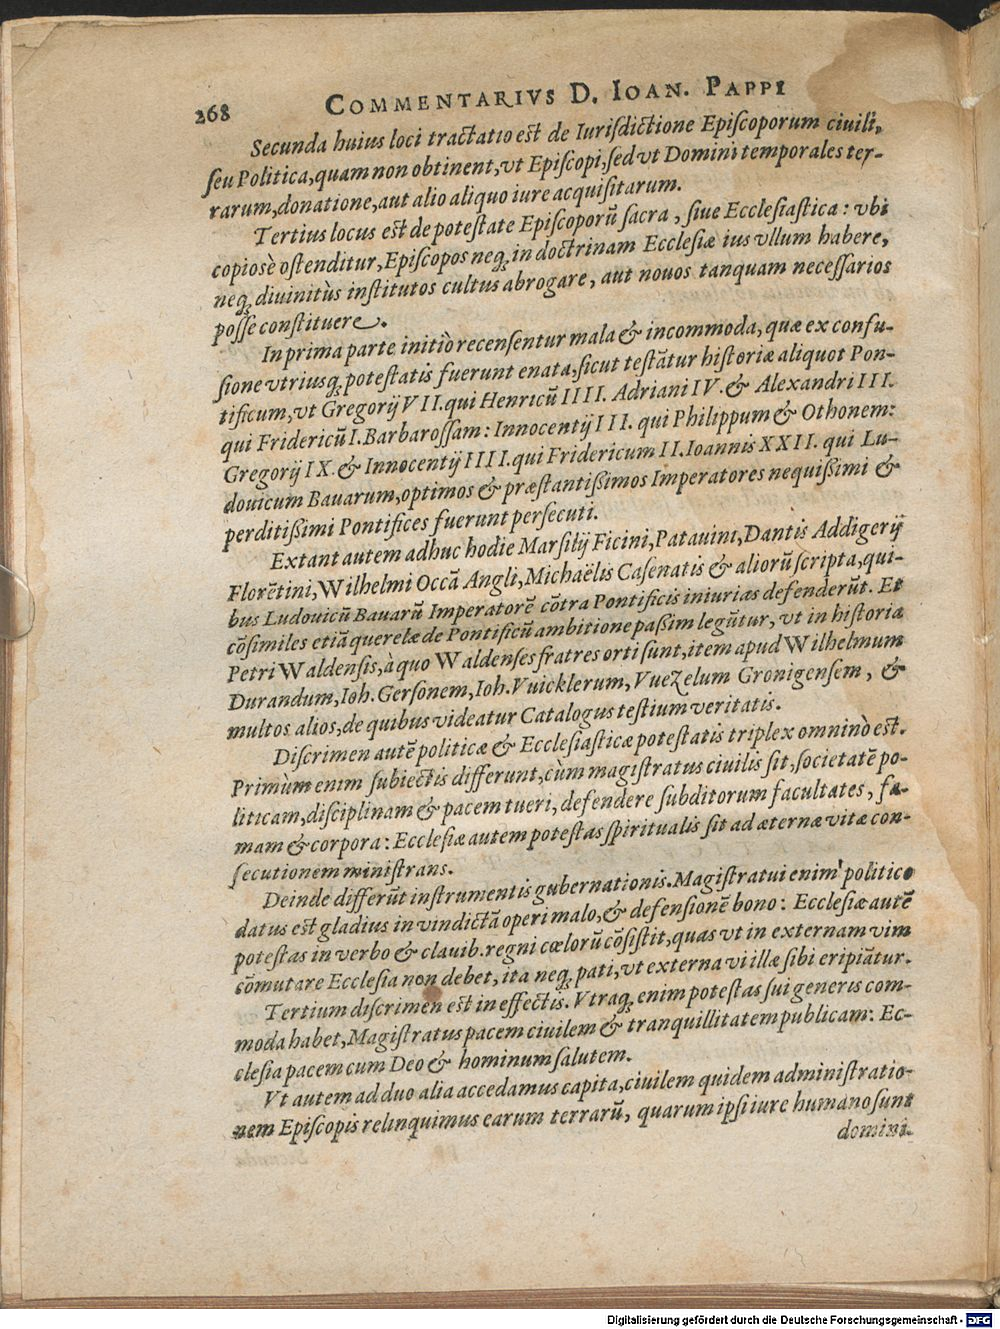 268 COMMENTARIVS D. IOAN. PAPPI
Secunda huius loci tractatio est de Iurisdictione Episcoporum ciuili,
seu Politica, quam non obtinent, vt Episcopi, sed vt Domini temporales ter-
rarum, donatione, aut alio aliquo iure acquisitarum.
Tertius locus est de potestate Episcoporũ sacra, siue Ecclesiastica: vbi
copiosè ostenditur, Episcopos neq; in doctrinam Ecclesiæ ius vllum habere,
neq; diuinitùs institutos cultus abrogare, aut nouos tanquam necessarios
posse constituere.
In prima parte initiò recensentur mala & incommoda, quæ ex confu-
sione vtriusq; potestatis fuerunt enata, sicut testãtur historiæ aliquot Pon-
tificum, vt Gregorij VII. qui Henricũ IIII. Adriani IV. & Alexandri III.
qui Fridericũ I. Barbarossam: Innocentij III. qui Philippum & Othonem:
Gregorij IX. & Innocentij IIII. qui Fridericum II. Ioannis XXII. qui Lu-
douicum Bauarum, optimos & præstantißimos Imperatores nequißimi &
perditißimi Pontifices fuerunt persecuti.
Extant autem adhuc hodie Marsilij Ficini, Patauini, Dantis Addigerij
Florẽtini, Wilhelmi Occã Angli, Michaëlis Casenatis & aliorũ scripta, qui-
bus Ludouicũ Bauarũ Imperatorẽ cõtra Pontificis iniurias defenderũt. Et
cõsimiles etiã querelæ de Pontificũ ambitione paßim legũtur, vt in historia
Petri Waldensis, à quo Waldenses fratres orti sunt, item apud Wilhelmum
Durandum, Ioh. Gersonem, Ioh. Vuicklerum, Vuezelum Gronigensem, &
multos alios, de quibus videatur Catalogus testium veritatis.
Discrimen autẽ politicæ & Ecclesiasticæ potestatis triplex omninò est.
Primùm enim subiectis differunt, cùm magistratus ciuilis sit, societatẽ po-
liticam, disciplinam & pacem tueri, defendere subditorum facultates, fa-
mam & corpora: Ecclesiæ autem potestas spiritualis sit ad æternæ vitæ con-
secutionem ministrans.
Deinde differũt instrumentis gubernationis. Magistratui enim politico
datus est gladius in vindictã operi malo, & defensionẽ bono: Ecclesiæ autẽ
potestas in verbo & clauib. regni cœlorũ cõsistit, quas vt in externam vim
cõmutare Ecclesia non debet, ita neq; pati, vt externa vi illæ sibi eripiãtur.
Tertium discrimen est in effectis. Vtraq; enim potestas sui generis com-
moda habet, Magistratus pacem ciuilem & tranquillitatem publicam: Ec-
clesia pacem cum Deo & hominum salutem.
Vt autem ad duo alia accedamus capita, ciuilem quidem administratio-
nem Episcopis relinquimus earum terrarũ, quarum ipsi iure humano sunt
domini.
Digitalisierung gefördert durch die Deutsche Forschungsgemeinschaft - DFG